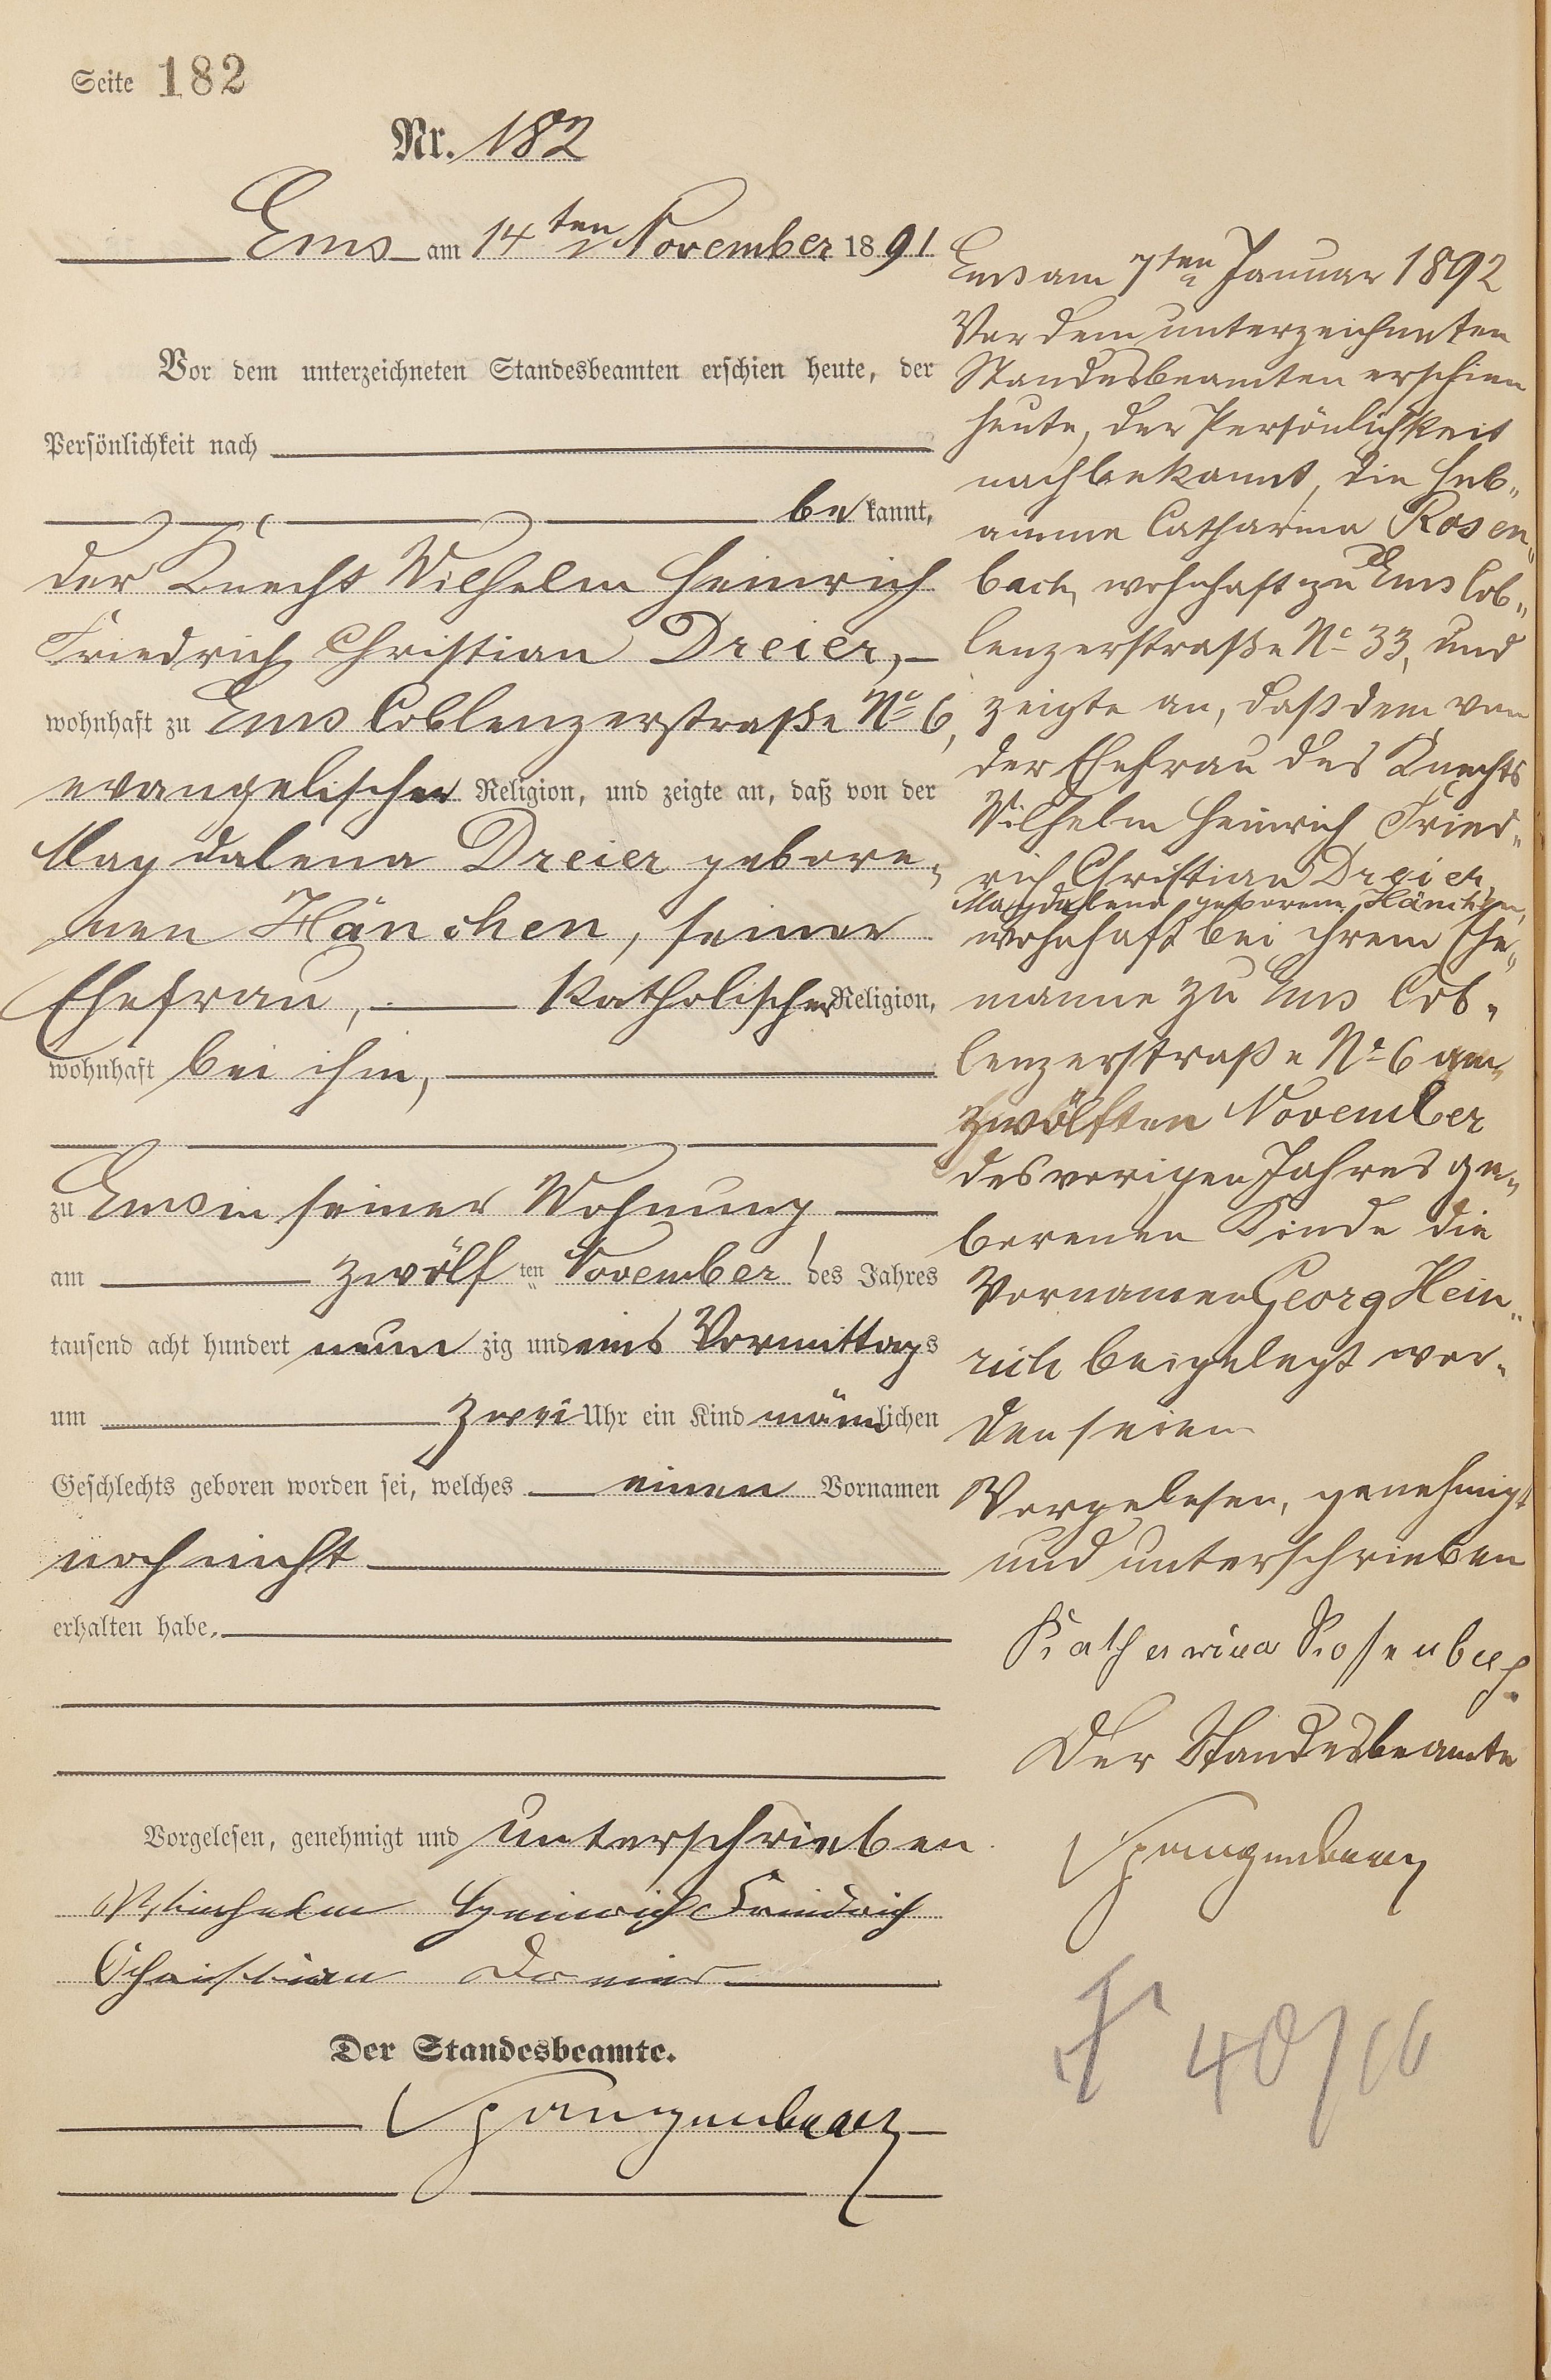 Seite 182
Nr. 182
Ems am 14ten November 1891
Vor dem unterzeichneten Standesbeamten erschien heute, der
Persönlichkeit nach
bekannt,
der Knecht Wilhelm Heinrich
Friedrich Christian Dreier,
wohnhaft zu Ems Coblenzerstraße No 6,
evangelischer Religion, und zeigte an, daß von der
Magdalena Dreier gebore-
nen Hänchen, seiner
Ehefrau, katholischer Religion,
wohnhaft bei ihm,
zu Ems in seiner Wohnung
am zwölf ten November des Jahres
tausend acht hundert neun zig und eins Vormittags
um zwei Uhr ein Kind männlichen
Geschlechts geboren worden sei, welches einen Vornamen
noch nicht
erhalten habe.
Vorgelesen, genehmigt und unterschrieben
Wilhelm Heinrich Friedrich
Christian Dreier
Der Standesbeamte.
Spangenberg
Ems am 7ten Januar 1892
Vor dem unterzeichneten
Standesbeamten erschien
heute, der Persönlichkeit
nach bekannt, die Heb-
amme Catharina Rosen-
bach, wohnhaft zu Ems Cob-
lenzerstraße No 33, und
zeigte an, daß dem von
der Ehefrau des Knechts
Wilhelm Heinrich Fried-
rich Christian Dreier,
Magdalena geborene Hänchen,
wohnhaft bei ihrem Ehe-
manne zu Ems Cob-
lenzerstraße No 6 am
zwölften November
des vorigen Jahres ge-
borenen Kinde die
Vornamen Georg Hein-
rich beigelegt wor-
den seien
Vorgelesen, genehmigt
und unterschrieben
Katharina Rosenbach.
Der Standesbeamte
Spangenberg